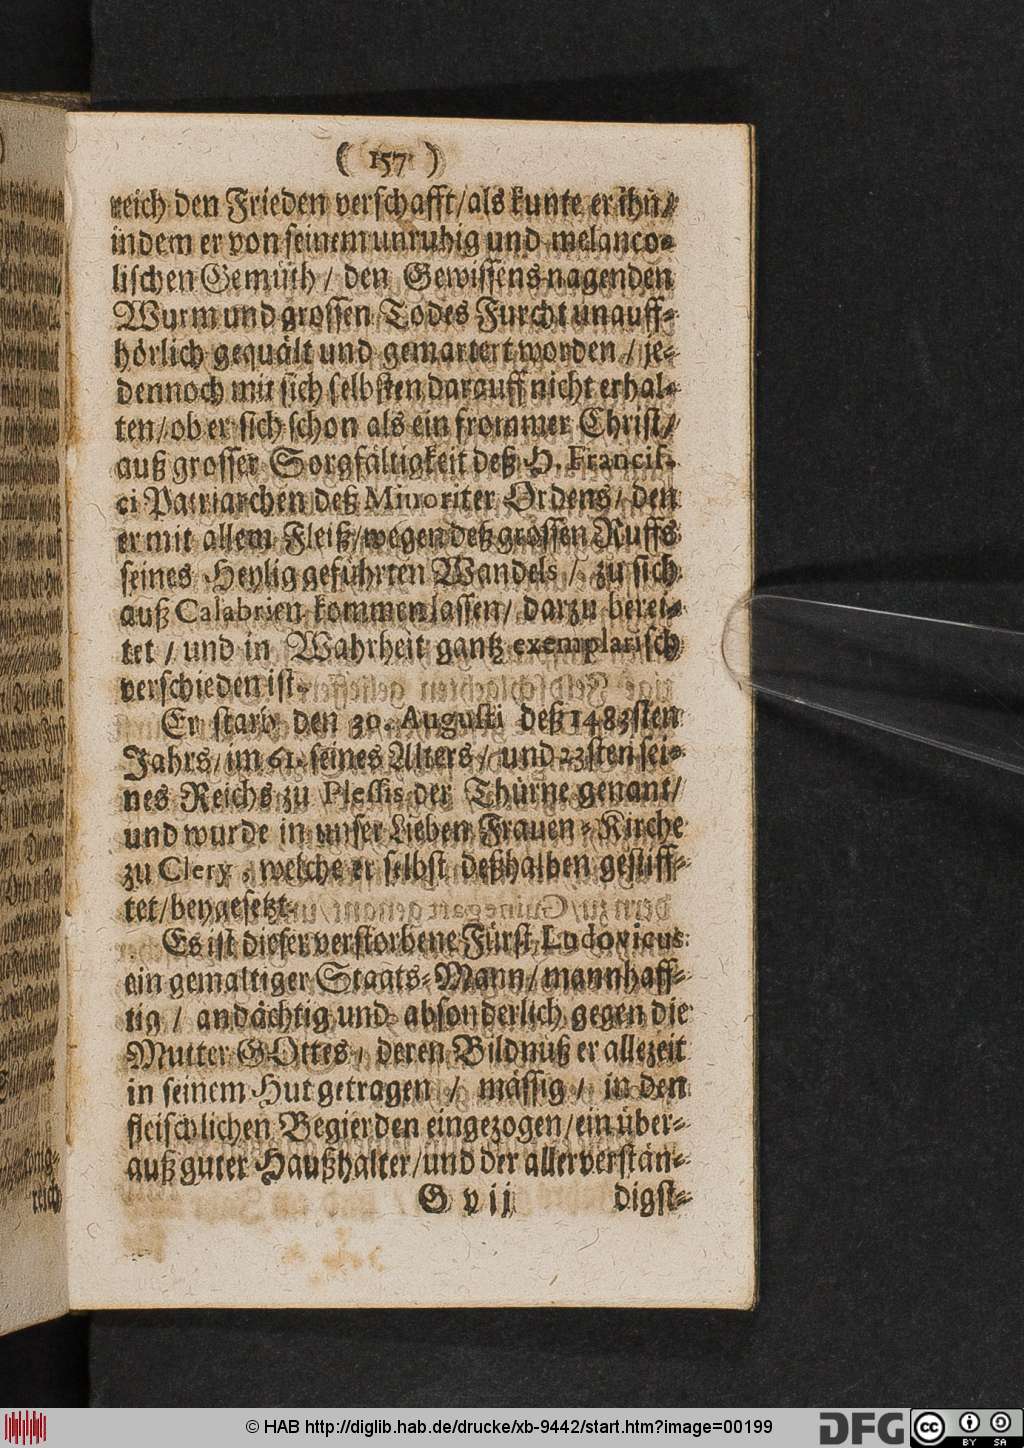 ( 157 )
reich den Frieden verschafft/als kunte er ihn/
indem er von seinem unruhig und melanco-
lischen Gemüth / den Gewissens-nagenden
Wurm und grossen Todes Furcht unauff-
hörlich gequält und gemartert worden / je-
dennoch mit sich selbsten darauff nicht erhal-
ten/ob er sich schon als ein frommer Christ/
auß grosser Sorgfältigkeit deß H. Francis-
ci Patriarchen deß Minoriter Ordens/ den
er mit allem Fleiß/wegen deß grossen Ruffs
seines Heylig geführten Wandels / zu sich
auß Calabrien kommen lassen/ darzu berei-
tet / und in Wahrheit gantz exemplarisch
verschieden ist.
Er starb den 30. Augusti deß 1483sten
Jahrs/im 61. seines Alters / und 23sten sei-
nes Reichs zu Plessis der Thürne genant/
und wurde in unser Lieben Frauen-Kirche
zu Clery, welche er selbst deßhalben gestiff-
tet/beygesetzt.
Es ist dieser verstorbene Fürst, Ludovicus
ein gewaltiger Staats-Mann/mannhaff-
tig / andächtig und absonderlich gegen die
Mutter GOttes, deren Bildnüß er allezeit
in seinem Hut getragen / mässig / in den
fleischlichen Begierden eingezogen/ein über-
auß guter Haußhalter/und der allerverstän-
G vij digst-
König-
reich
© HAB http://diglib.hab.de/drucke/xb-9442/start.htm?image=00199
DFG
cc
BY SA